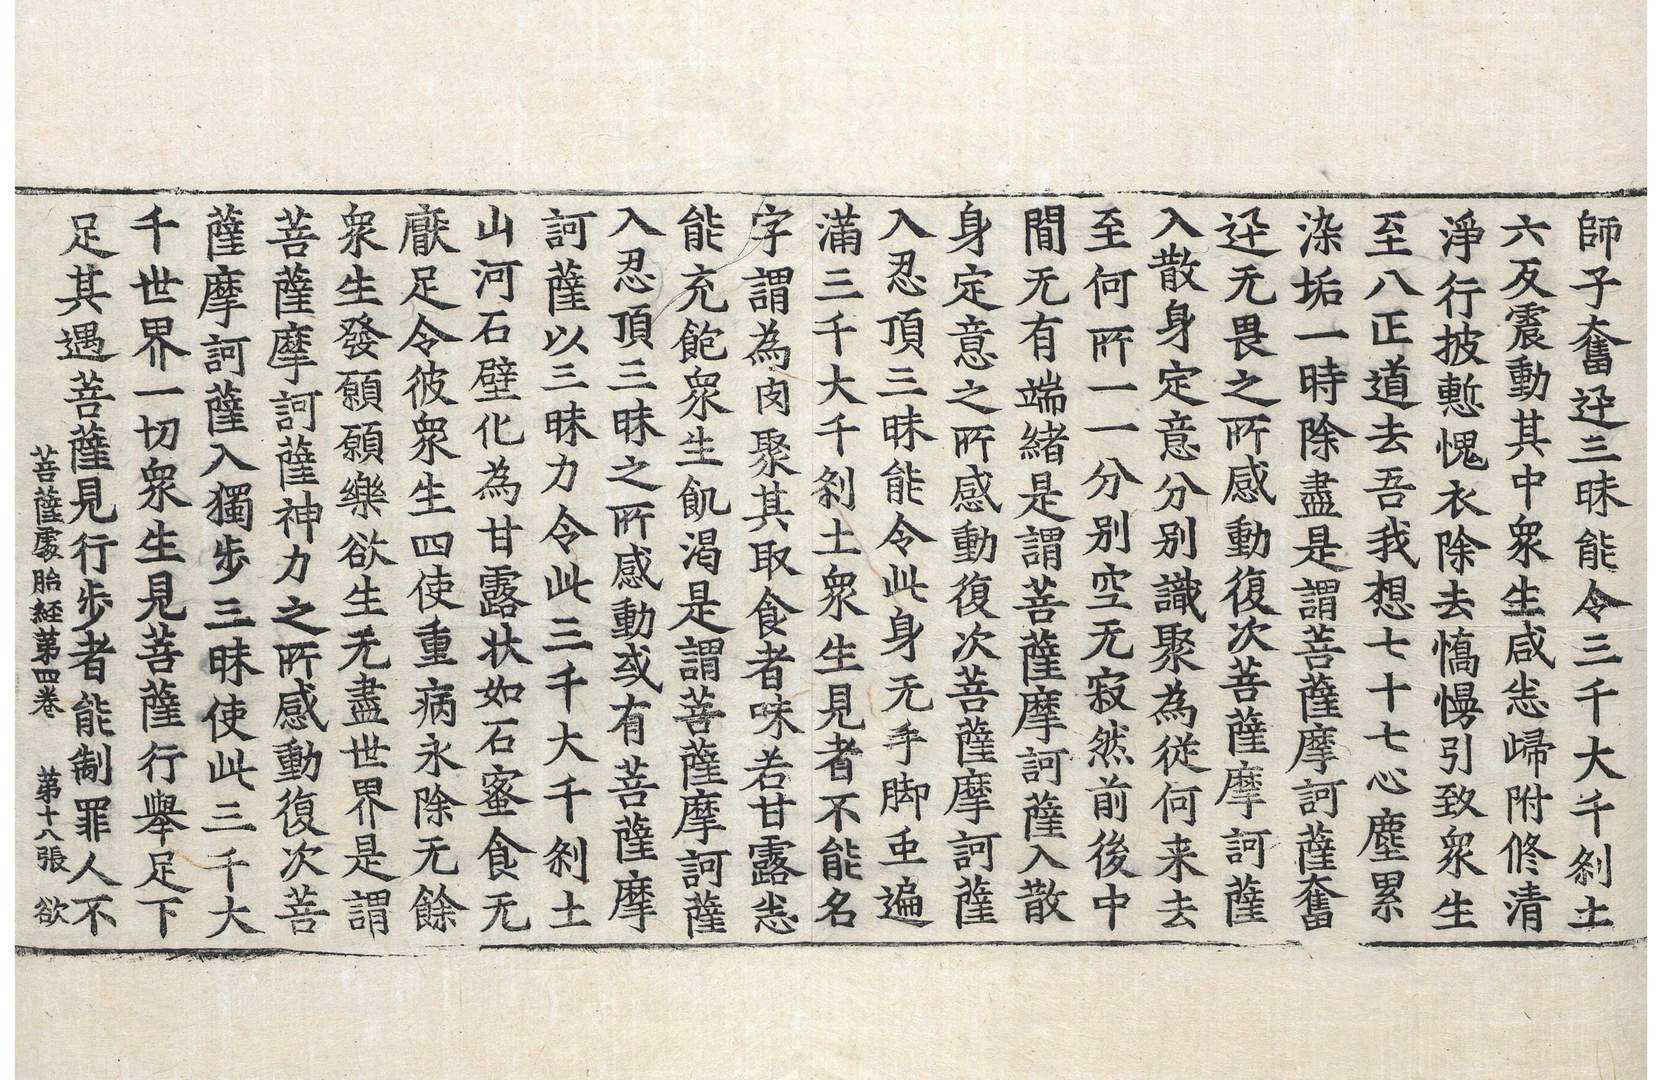 師子奮迅三昧能令三千大千刹土
六反震動其中衆生咸悉歸附修清
淨行披慙愧衣除去憍慢引致衆生
至八正道去吾我想七十七心塵累
染垢一時除盡是謂菩薩摩訶薩奮
迅无畏之所感動復次菩薩摩訶薩
入散身定意分別識聚為從何来去
至何所一一分別空无寂然前後中
間无有端緒是謂菩薩摩訶薩入散
身定意之所感動復次菩薩摩訶薩
入忍頂三昧能令此身无手脚走遍
滿三千大千刹土衆生見者不能名
字謂為肉聚其取食者味若甘露悉
能充飽衆生飢渴是謂菩薩摩訶薩
入忍頂三昧之所感動或有菩薩摩
訶薩以三昧力令此三千大千刹土
山河石壁化為甘露状如石蜜食无
猒足令彼衆生四使重病永除无餘
衆生發願願樂欲生无盡世界是謂
菩薩摩訶薩神力之所感動復次菩
薩摩訶薩入獨步三昧使此三千大
千世界一切衆生見菩薩行舉足下
足其遇菩薩見行步者能制罪人不
菩薩處胎經第四卷 第十八張 欲